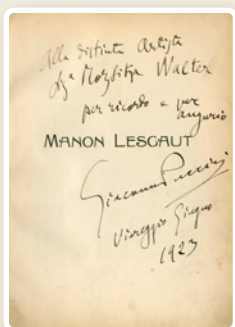 Alla distinta Artista
Walter
per ricordo e per
augurio
MANON LESCAUT
Giacomo Puccini
Viareggio Giugno
1923